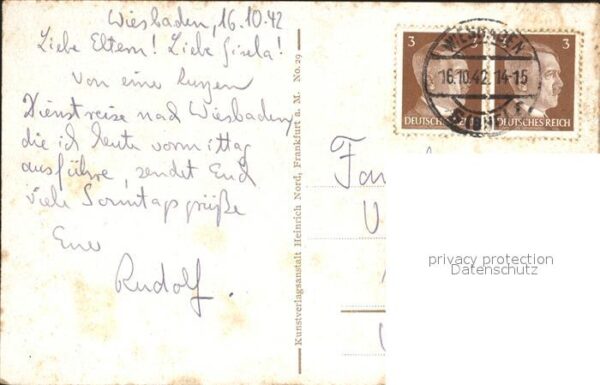 Wiesbaden, 16.10.42
Liebe Eltern! Liebe Gisela!
Von eine kurzen
Dienstreise nach Wiesbaden
die ich heute vormittag
ausführe, sendet Euch
viele Sonntagsgrüße
Euer
Rudolf.
Kunstverlagsanstalt Heinrich Nord, Frankfurt a. M. No. 29
3
3
WIESBADEN
16.10.42. 14-15
DEUTSCHES REICH
Fam
privacy protection
Datenschutz